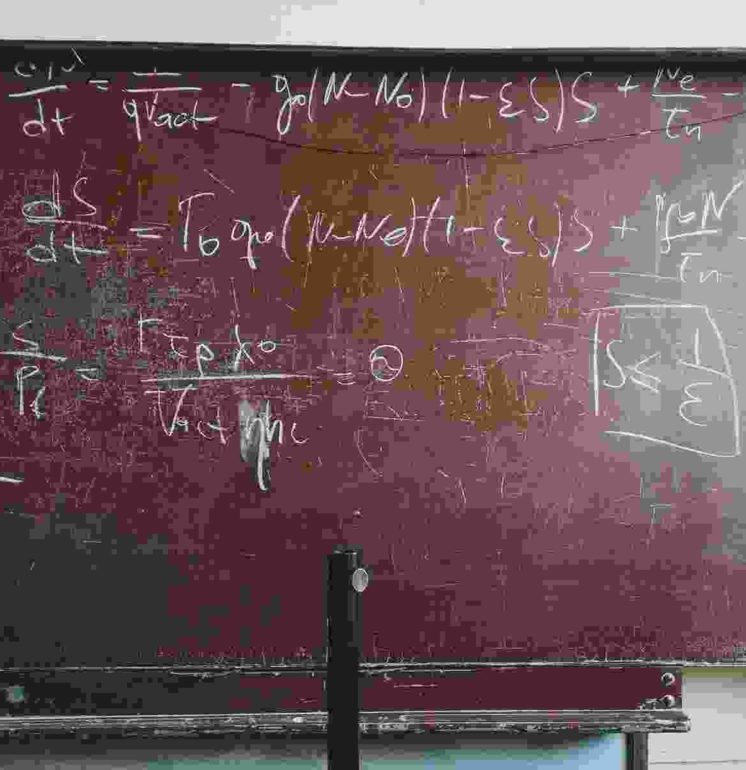 dN/dt = I/qVact - g₀(N-N₀)(1-εS)S + Nₑ/τₙ -
dS/dt = Γ₀ g₀(N-N₀)(1-εS)S + ΓβN/τₙ -
S/Pf = Γτₚλ₀/Vact ηhc = ② S ≤ 1/ε